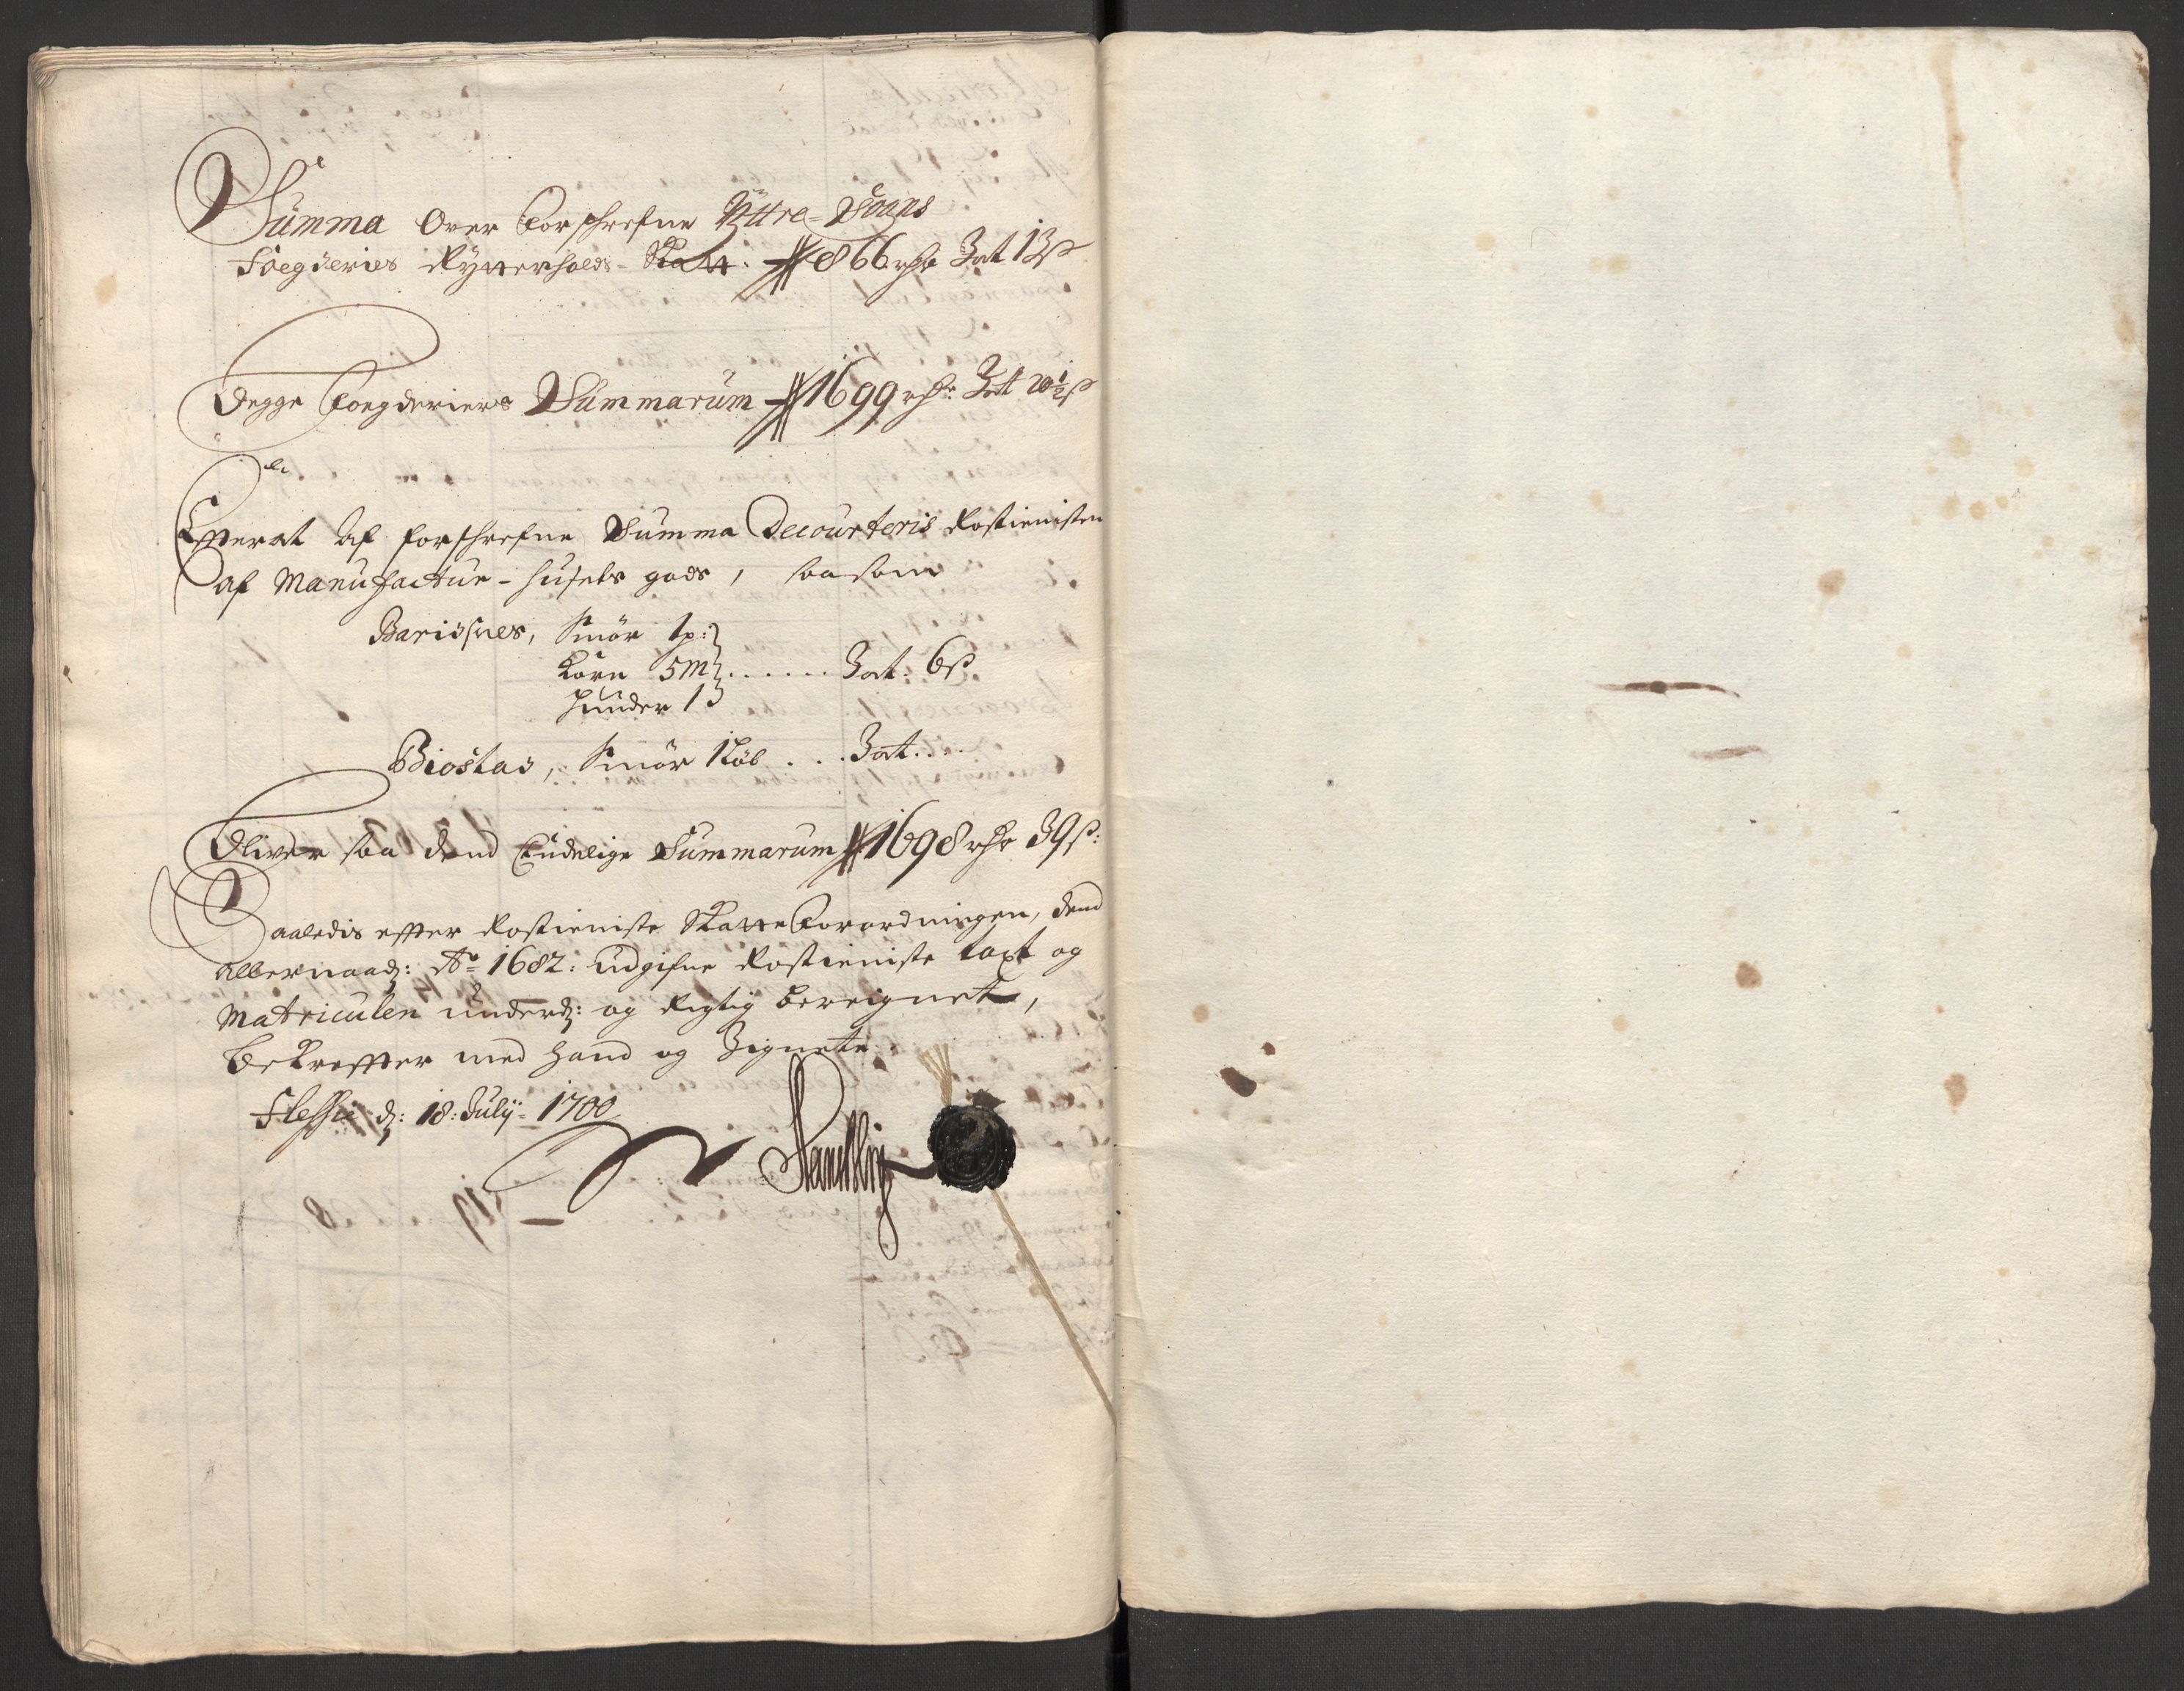 Summa Over Forschrefne Ÿttre-Sogns
Foegderies Rytterholds-Skatt. 866 rdr 3 ort 13 ß
Begge Foegderiers Summarum 1699 rdr: 3 ort 20½ ß
Efterat af forschrefne Summa Decourteris Rostienisten
af Manufactur-husets gods, saasom
Barisnes, Smör 1 p:
Korn 5 m ...... 3 ort: 6 ß
Huuder 1
Biostad, Smör 1 Löb ... 3 ort....
Bliver saa dend Endelige Summarum 1698 rdr 39 ß:
Saaledis effter Rostieniste Skatte Forordningen, dend
Allernaad: Ao 1682: udgifne Rostieniste taxt og
Matriculen underd: og Rigtig bereignet,
bekreffter med Hand og Zignete.
Flesche d: 18: Julÿ 1700